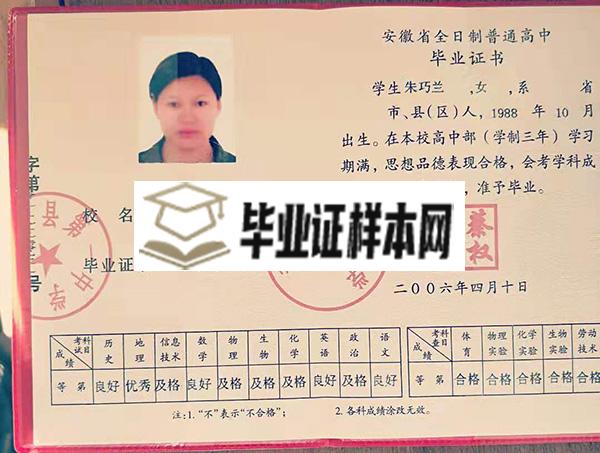 安徽省全日制普通高中
毕业证书
学生朱巧兰 ,女 ,系 省
市、县(区)人, 1988 年 10 月
出生。在本校高中部(学制三年)学习
期满，思想品德表现合格，会考学科成
，准予毕业。
校 名
毕业证
字第 号
县第一中学
蔡权
毕业证样本网
二〇〇六年四月十日
考试科目 历史 地理 信息技术 数学 物理 生物 化学 英语 政治 语文
成绩
等 第 良好 优秀 及格 良好 及格 及格 及格 良好 及格 良好
考查科目 体育 物理实验 化学实验 生物实验 劳动技术
成绩
等 第 合格 合格 合格 合格 合格
注:1.“不”表示“不合格”； 2.各科成绩涂改无效。